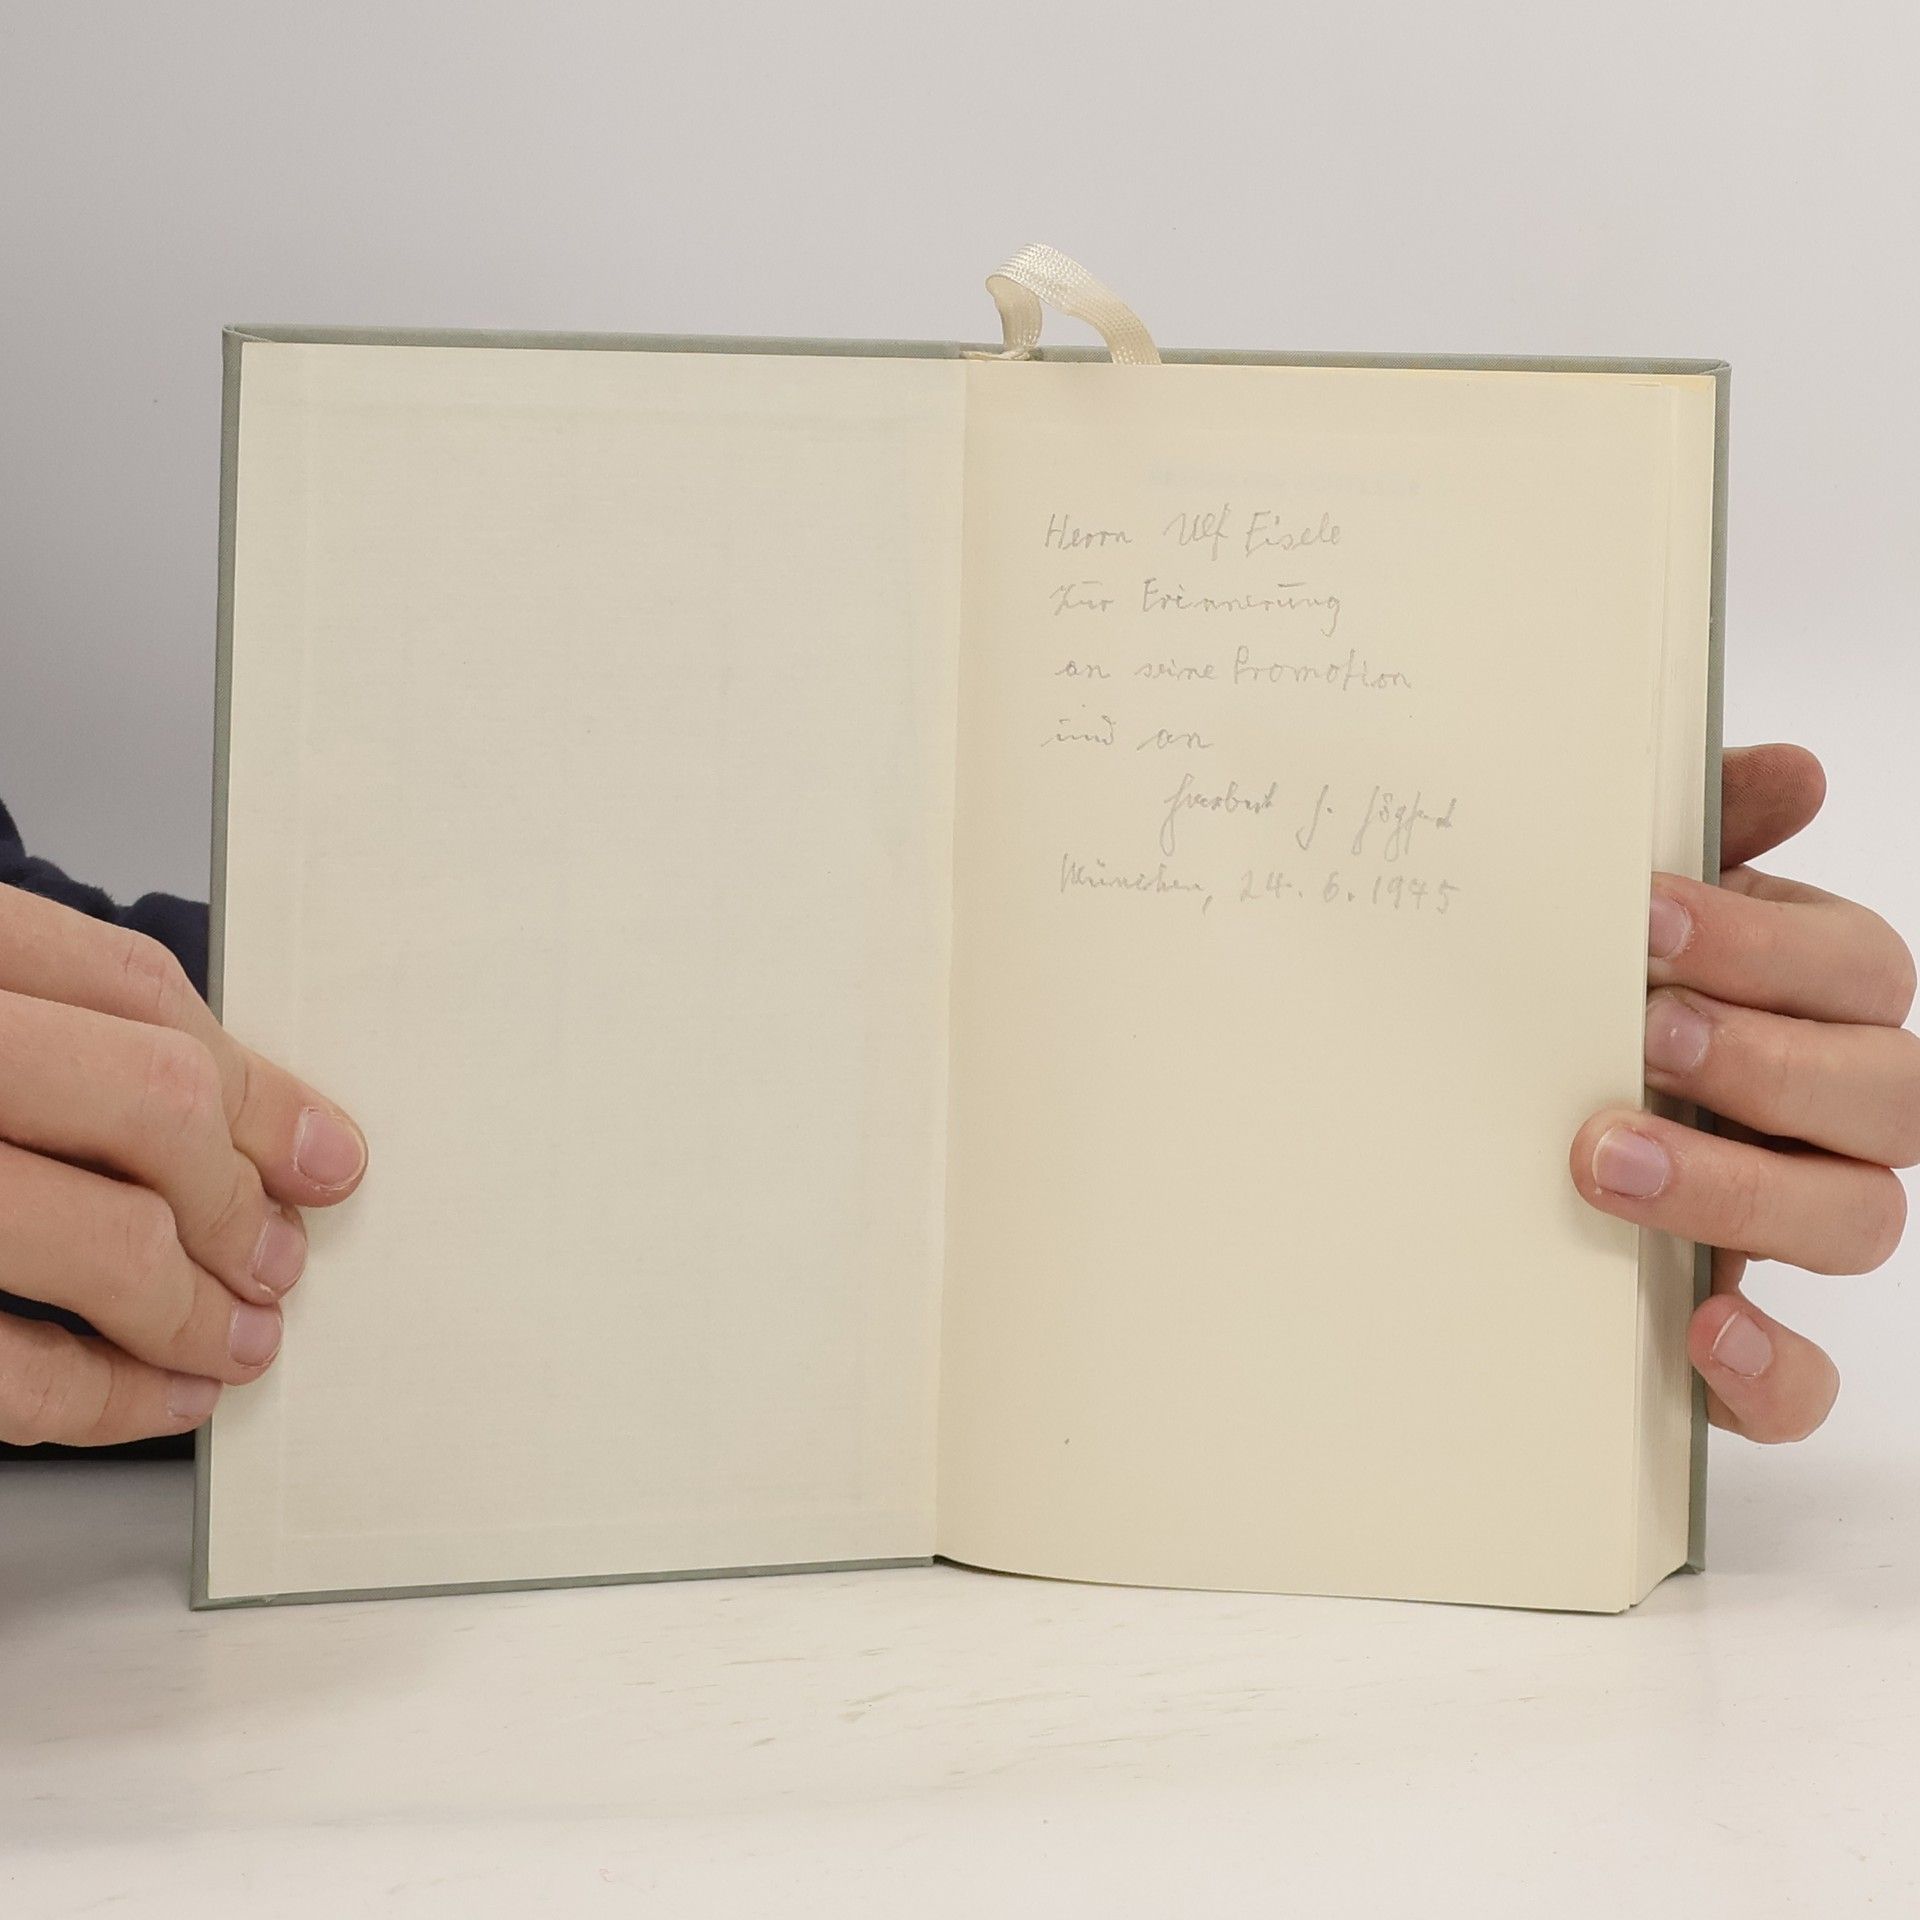 Herrn Ulf Eisele
zur Erinnerung
an seine Promotion
und an
Herbert G. Göpfert
München, 24. 6. 1975